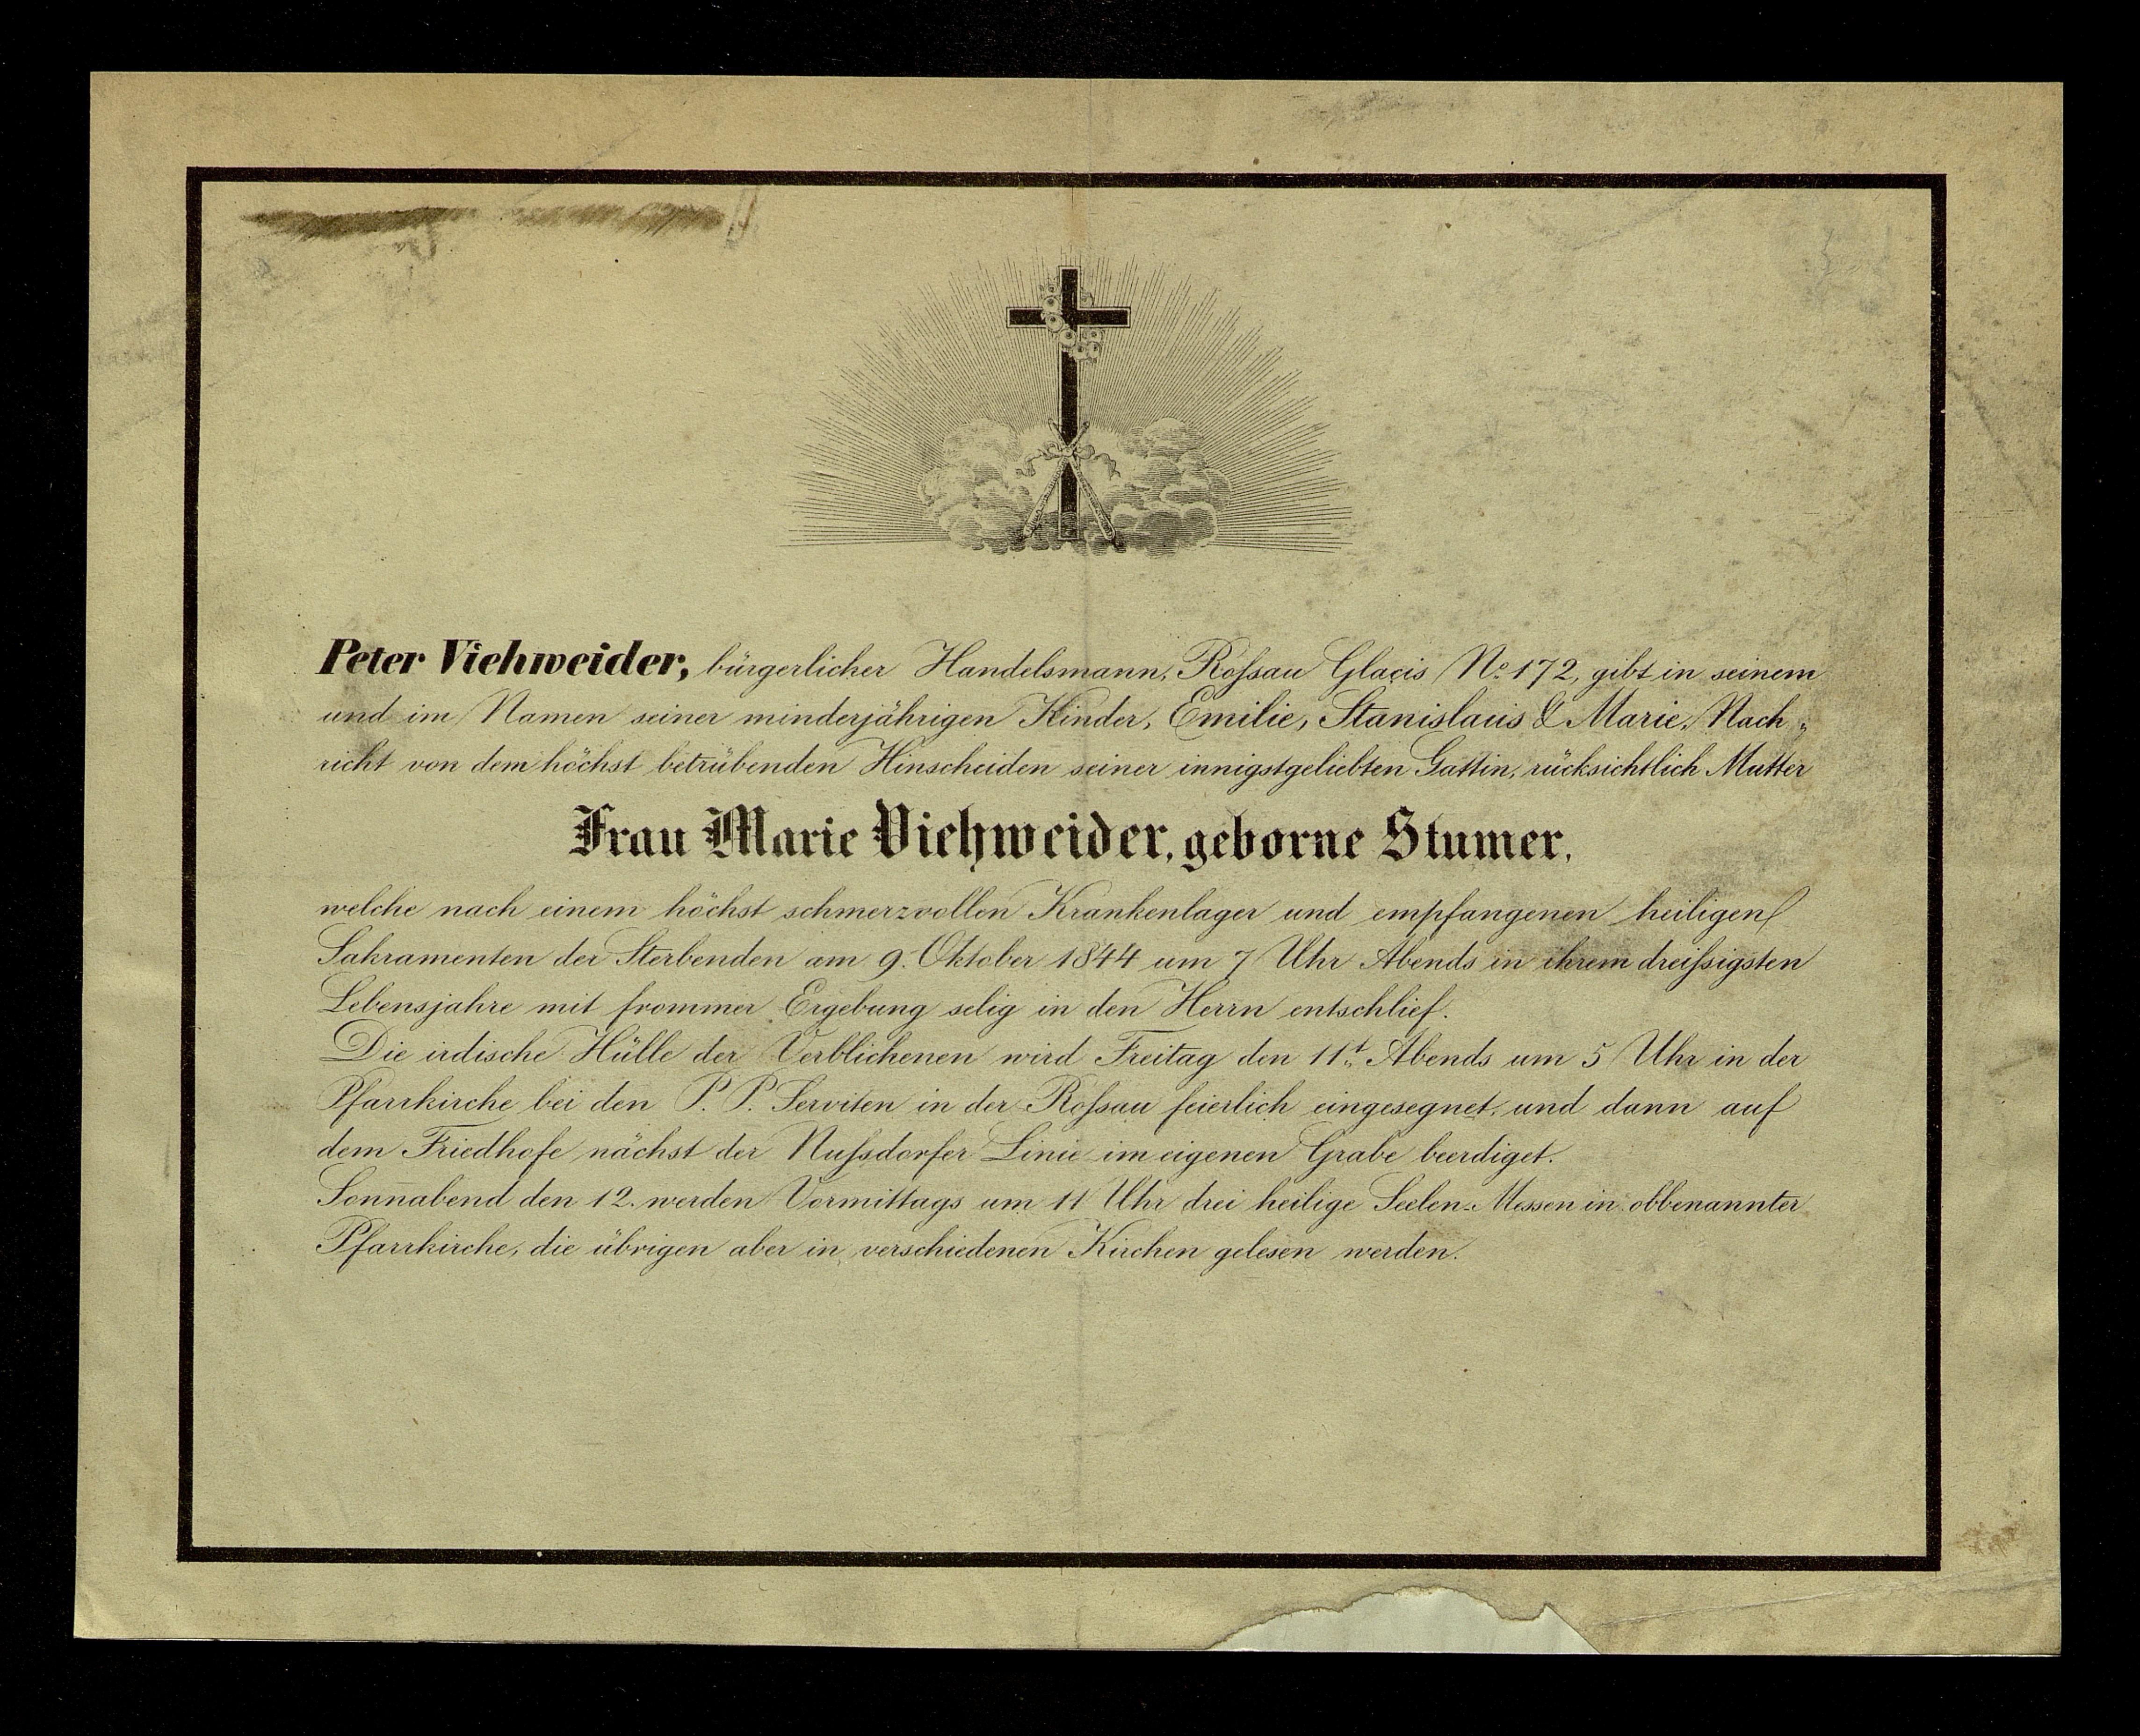 Peter Viehweider, bürgerlicher Handelsmann, Roſsau Glacis No. 172, gibt in seinem
und im Namen seiner minderjährigen Kinder, Emilie, Stanislaus & Marie, Nach-
richt von dem höchst betrübenden Hinscheiden seiner innigstgeliebten Gattin, rücksichtlich Mutter
Frau Marie Viehweider, geborne Stumer,
welche nach einem höchst schmerzvollen Krankenlager und empfangenen heiligen
Sakramenten der Sterbenden am 9. Oktober 1844 um 7 Uhr Abends in ihrem dreiſsigsten
Lebensjahre mit frommer Ergebung selig in den Herrn entschlief.
Die irdische Hülle der Verblichenen wird Freitag den 11t. Abends um 5 Uhr in der
Pfarrkirche bei den P. P. Serviten in der Roſsau feierlich eingesegnet, und dann auf
dem Friedhofe nächst der Nuſsdorfer Linie im eigenen Grabe beerdiget.
Soñnabend den 12. werden Vormittags um 11 Uhr drei heilige Seelen-Messen in obbenannter
Pfarrkirche, die übrigen aber in verschiedenen Kirchen gelesen werden.